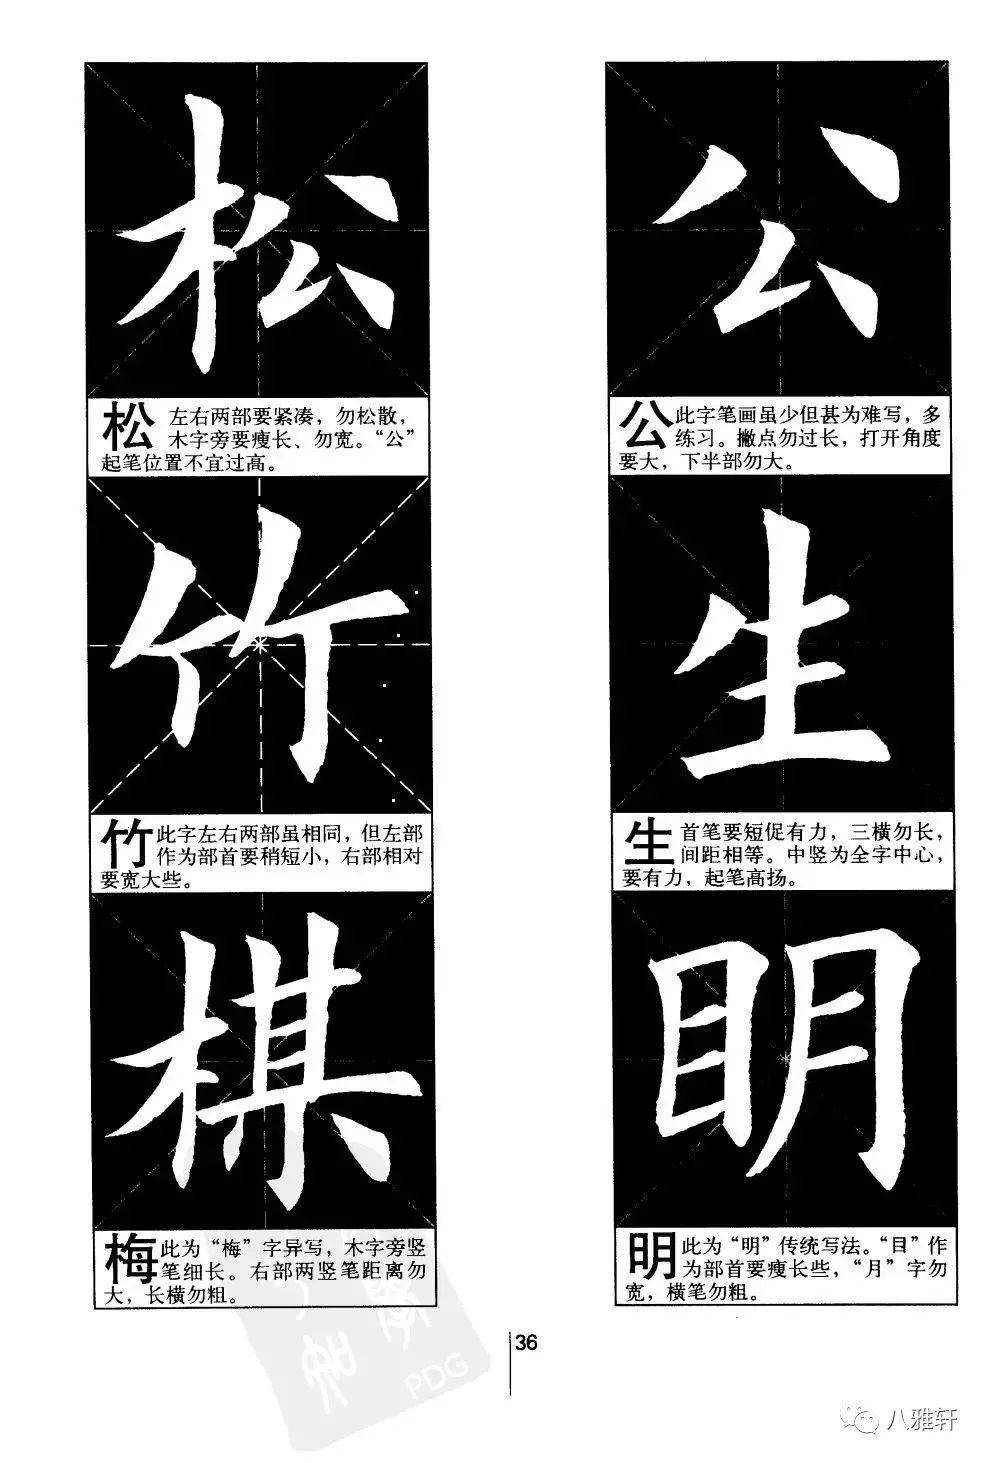 松
松 左右两部要紧凑，勿松散，
木字旁要瘦长、勿宽。“公”
起笔位置不宜过高。
竹
竹 此字左右两部虽相同，但左部
作为部首要稍短小，右部相对
要宽大些。
梅 此为“梅”字异写，木字旁竖
笔细长。右部两竖笔距离勿
大，长横勿粗。
公
公 此字笔画虽少但甚为难写，多
练习。撇点勿过长，打开角度
要大，下半部勿大。
生
生 首笔要短促有力，三横勿长，
间距相等。中竖为全字中心，
要有力，起笔高扬。
明 此为“明”传统写法。“目”作
为部首要瘦长些，“月”字勿
宽，横笔勿粗。
36
PDG
八雅轩